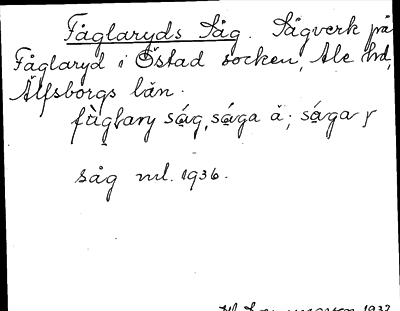 Fåglaryds Såg. Sågverk på
Fåglaryd i Östad socken, Ale hd,
Älfsborgs län.
såg, såga ä; såga r
såg ml. 1936.
1937